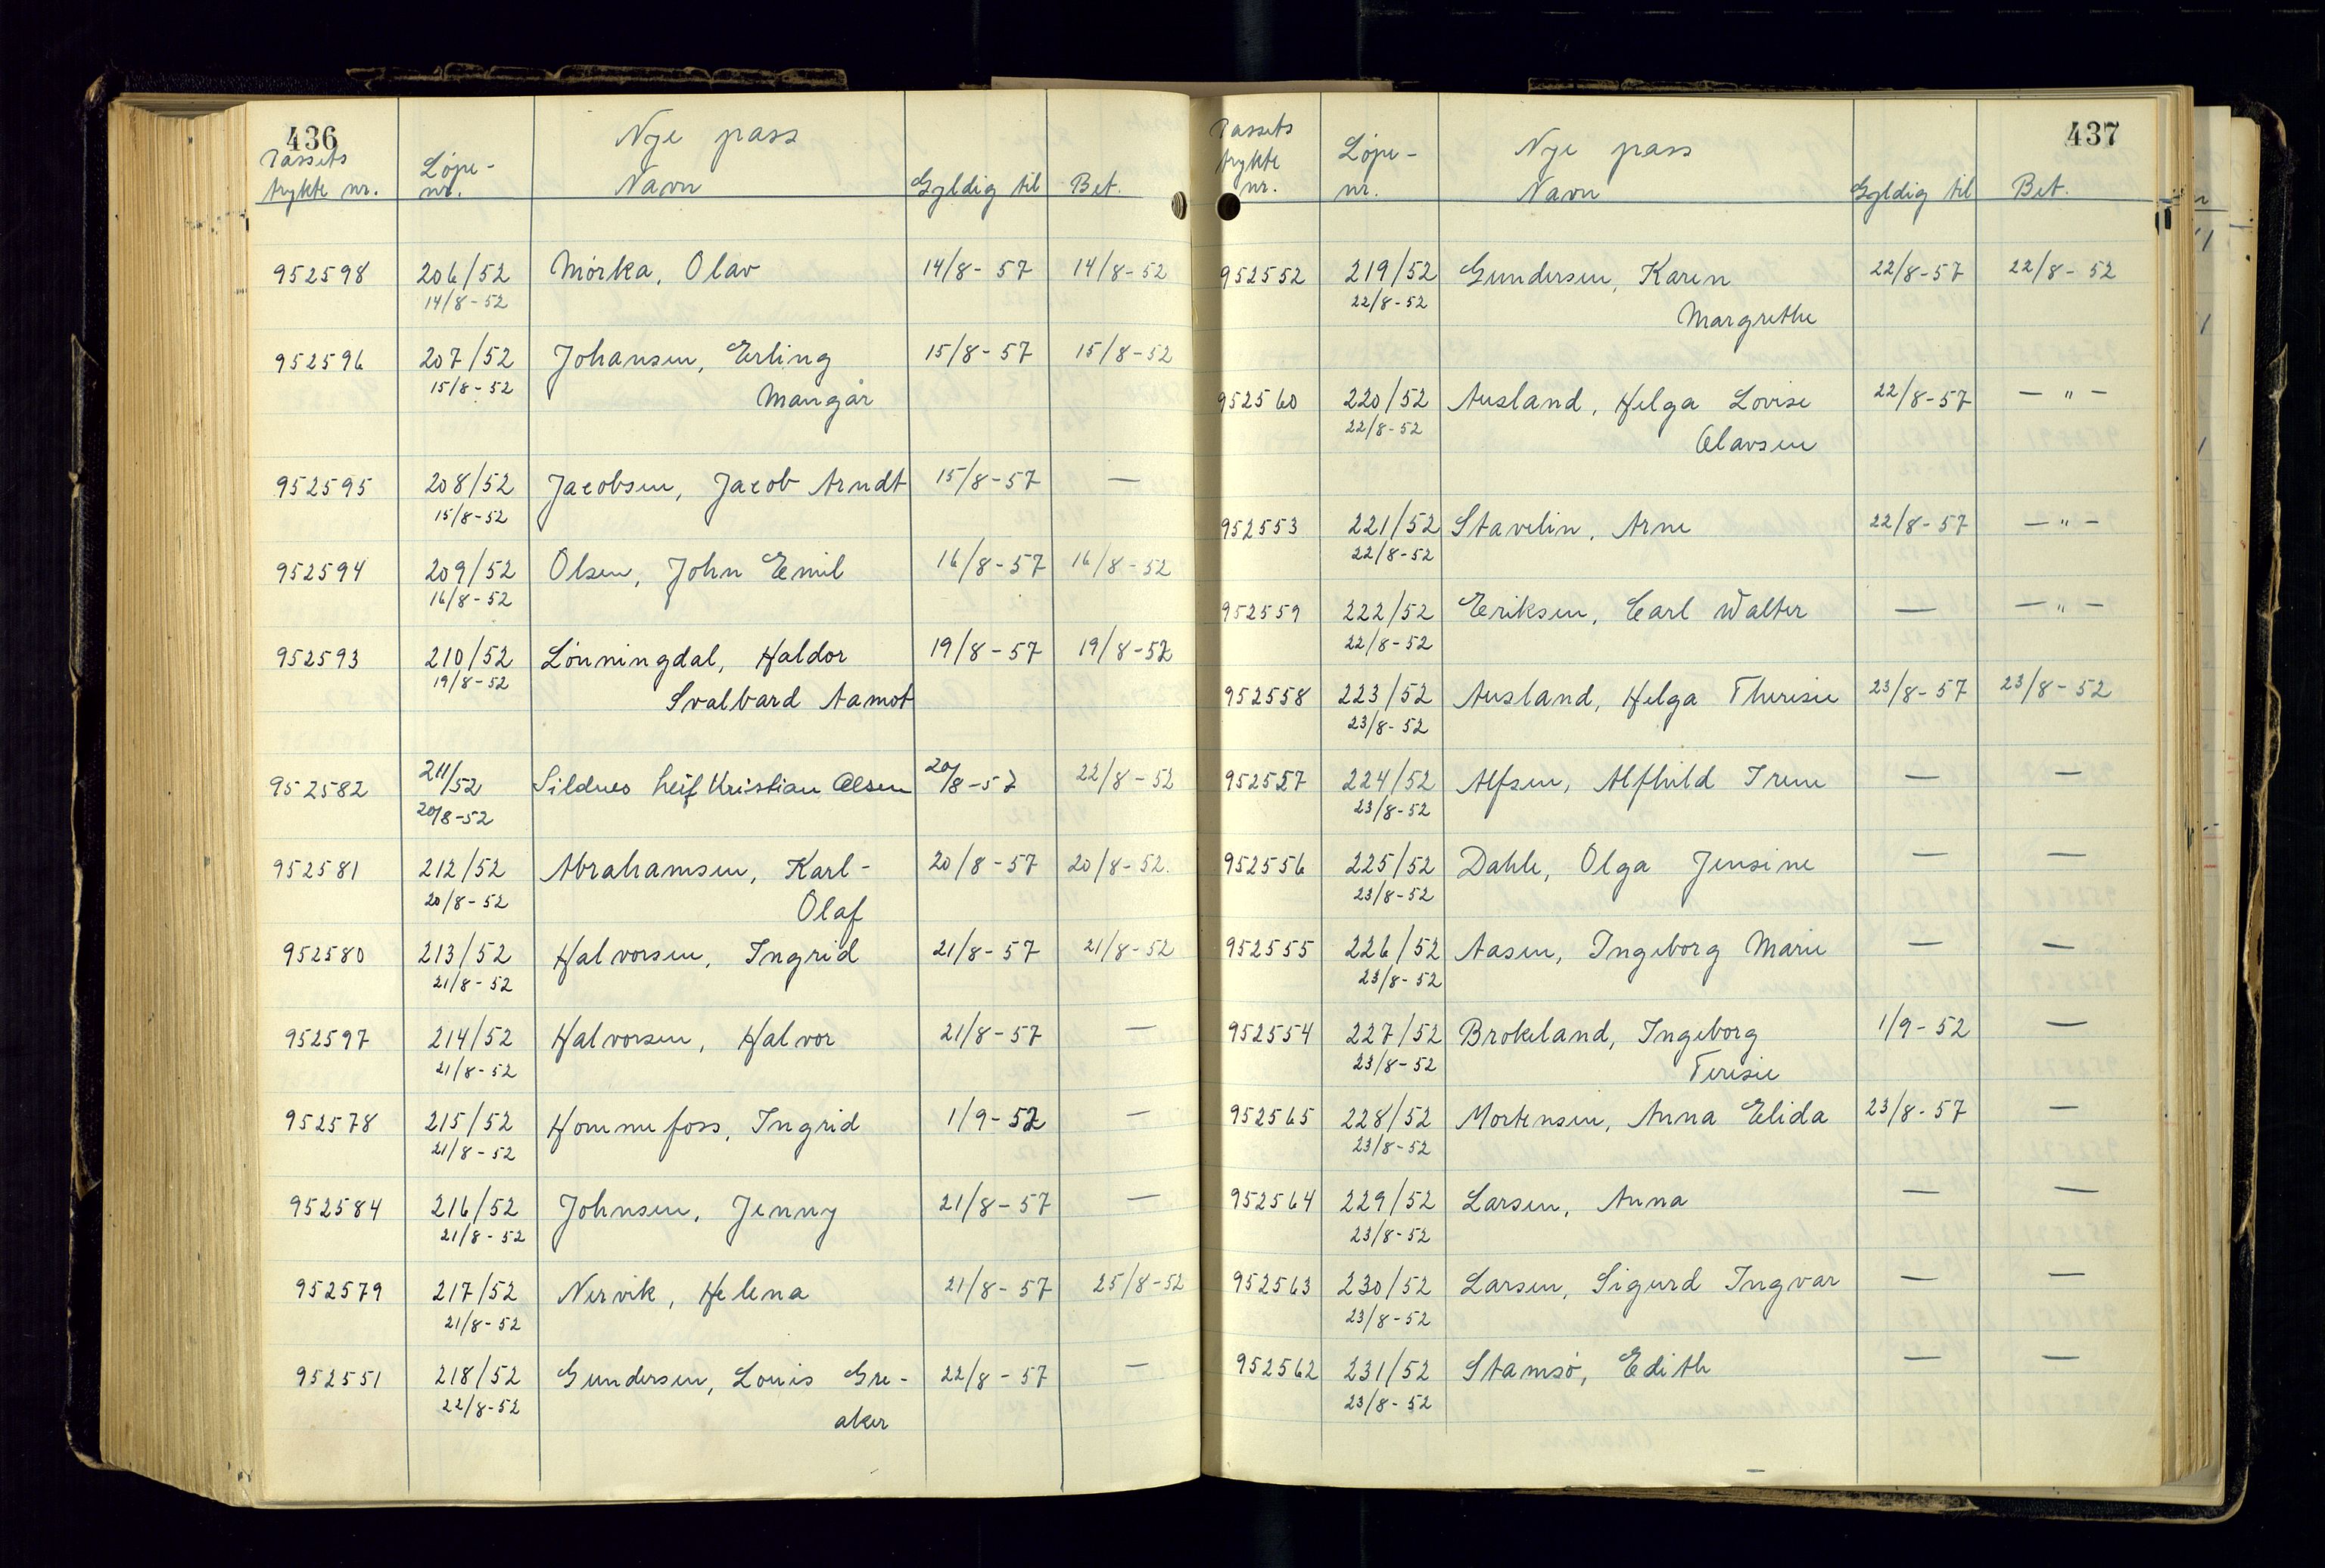 436
Passets
trykte nr.
Løpe-
nr.
Nye pass
Navn
Gyldig til
Bet.
952598 206/52 Mørka, Olav 14/8-57 14/8-52
14/8-52
952596 207/52 Johansen, Erling 15/8-57 15/8-52
15/8-52 Mangår
952595 208/52 Jacobsen, Jacob Arndt 15/8-57 —
15/8-52
952594 209/52 Olsen, John Emil 16/8-57 16/8-52
16/8-52
952593 210/52 Lønningdal, Haldor 19/8-57 19/8-52
19/8-52 Svalbard Aamot
952582 211/52 Sildnes Leif Kristian Olsen 20/8-57 22/8-52
20/8-52
952581 212/52 Abrahamsen, Karl- 20/8-57 20/8-52.
20/8-52 Olaf
952580 213/52 Halvorsen, Ingrid 21/8-57 21/8-52
21/8-52
952597 214/52 Halvorsen, Halvor 21/8-57 —
21/8-52
952578 215/52 Hommefoss, Ingrid 1/9-52 —
21/8-52
952584 216/52 Johnsen, Jenny 21/8-57 —
21/8-52
952579 217/52 Nervik, Helena 21/8-57 25/8-52
21/8-52
952551 218/52 Gundersen, Louis Gre- 22/8-57 —
22/8-52 aker
437
Passets
trykte
nr.
Løpe-
nr.
Nye pass
Navn
Gyldig til
Bet.
952552 219/52 Gundersen, Karen 22/8-57 22/8-52
22/8-52 Margrethe
952560 220/52 Ausland, Helga Lovise 22/8-57 — " —
22/8-52 Olavsen
952553 221/52 Stavelin, Arne 22/8-57 — " —
22/8-52
952559 222/52 Eriksen, Carl Walter — — " —
22/8-52
952558 223/52 Ausland, Helga Theresie 23/8-57 23/8-52
23/8-52
952557 224/52 Alfsen, Alfhild Irene — —
23/8-52
952556 225/52 Dahle, Olga Jensine — —
23/8-52
952555 226/52 Aasen, Ingeborg Marie — —
23/8-52
952554 227/52 Brokeland, Ingeborg 1/9-52 —
23/8-52 Teresie
952565 228/52 Mortensen, Anna Elida 23/8-57 —
23/8-52
952564 229/52 Larsen, Anna — —
23/8-52
952563 230/52 Larsen, Sigurd Ingvar — —
23/8-52
952562 231/52 Stamsø, Edith — —
23/8-52